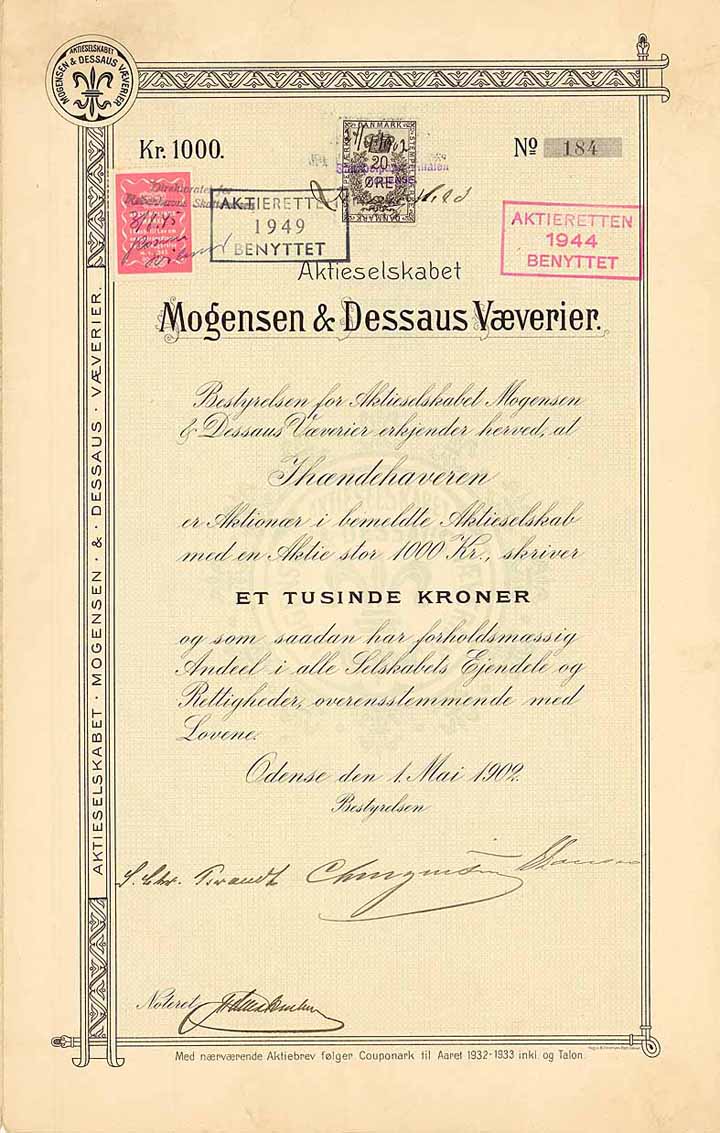 AKTIESELSKABET
MOGENSEN & DESSAUS VÆVERIER
Kr. 1000.
Nº 184
DANMARK
STEMPELMÆRKE
20
ØRE
DANMARK
Direktoratet for
Københavns Skattevæsen
AKTIERETTEN
1949
BENYTTET
AKTIERETTEN
1944
BENYTTET
Aktieselskabet
Mogensen & Dessaus Væverier.
Bestyrelsen for Aktieselskabet Mogensen
& Dessaus Væverier erkjender herved, at
Ihændehaveren
er Aktionær i bemeldte Aktieselskab
med en Aktie stor 1000 Kr., skriver
ET TUSINDE KRONER
og som saadan har forholdsmæssig
Andeel i alle Selskabets Ejendele og
Rettigheder, overensstemmende med
Lovene.
Odense den 1. Mai 1902.
Bestyrelsen
S. Chr. Brandt
Noteret
Med nærværende Aktiebrev følger Couponark til Aaret 1932-1933 inkl. og Talon.
AKTIESELSKABET · MOGENSEN · & · DESSAUS · VÆVERIER.